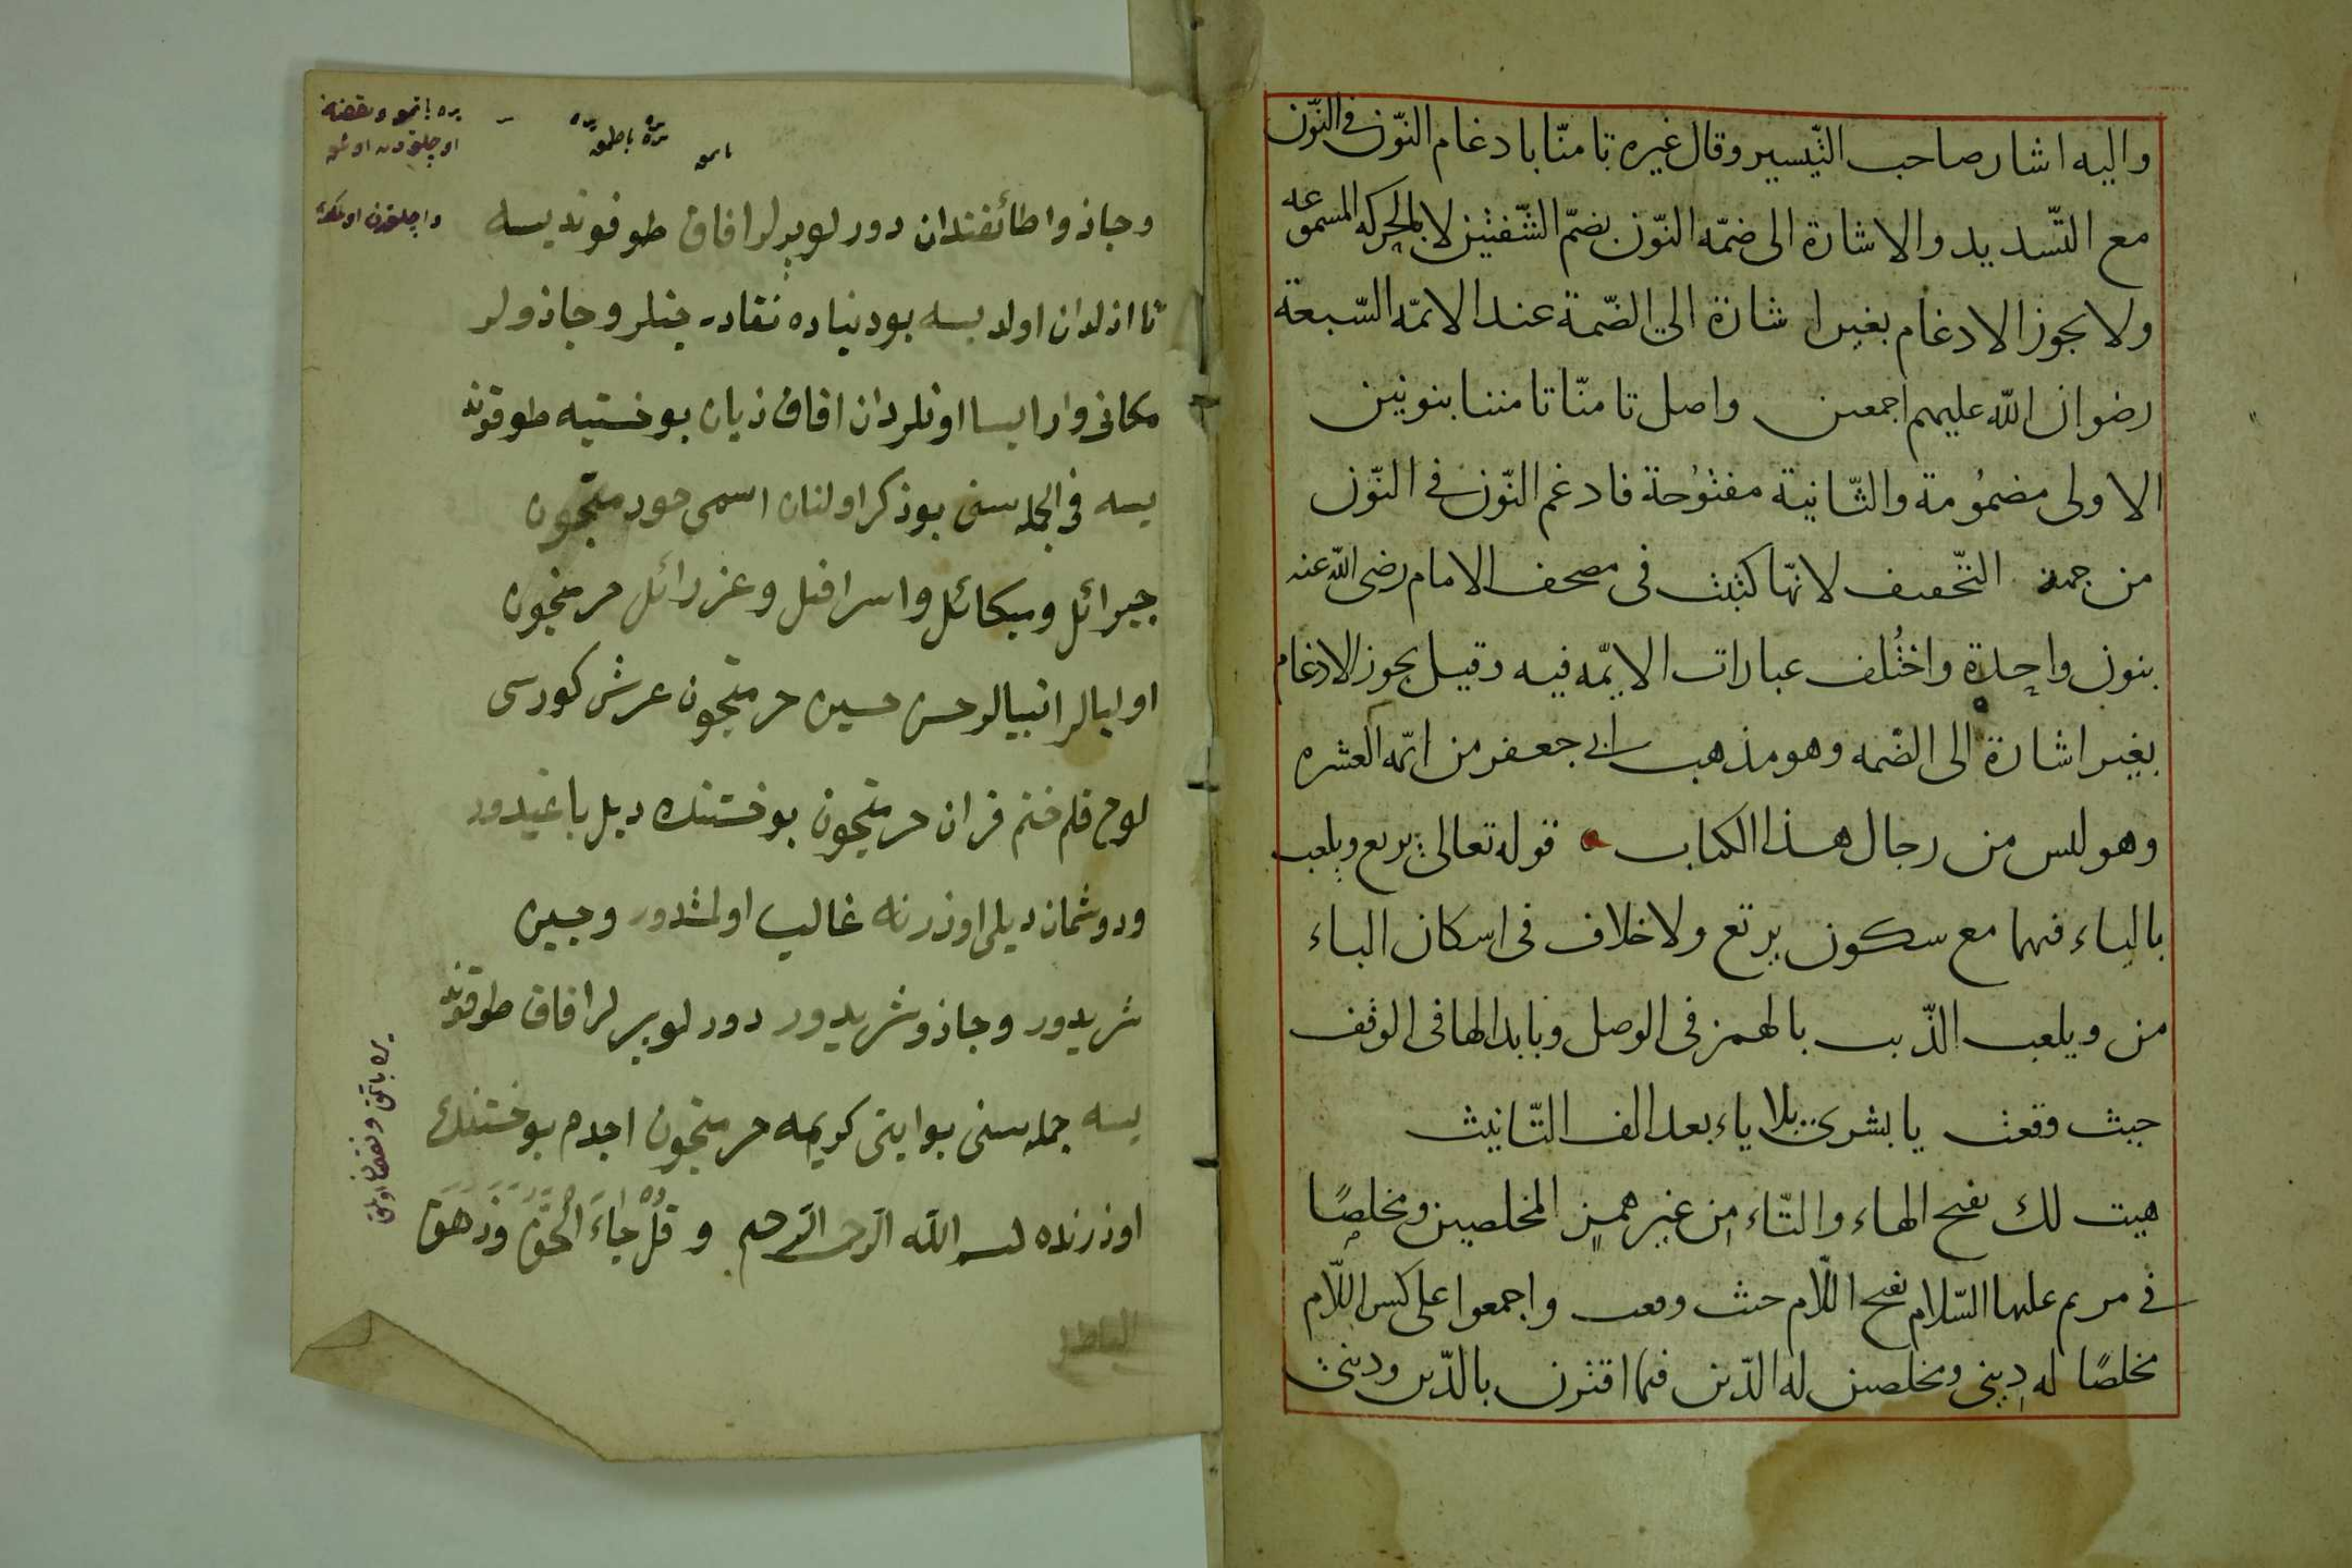 واليه اشار صاحب التّيسير وقال غيره تامنّا بادغام النّون في النّون
مع التّشديد والاشارة الى ضمّه النّون بضمّ الشّفتين لا بالحركه المسموعه
ولا يجوز الادغام بغير اشارة الى الضّمة عند الائمّه السّبعة
رضوان اللّه عليهم اجمعين واصل تامنّا تامننا بنونين
الاولى مضمُومة والثّانية مفتُوحة فادغم النّون في النّون
من جهة التّخفيف لانّها كتبت فى مصحف الامام رضى اللّه عنه
بنون واحِدة واختُلف عبارات الايمّه فيه وقيل يجوز الادغام
بغير اشارة الى الضّمه وهو مذهب ابى جعفر من ايمّه العشره
وهو ليس من رجال هذا الكتاب قوله تعالى يرتع ويلعب
بالياء فيهما مع سكون يرتع ولا خلاف فى اسكان الباء
من ويلعب الذّيب بالهمز فى الوصل وبابدالها فى الوقف
حيث وقعت يا بشرى بلا ياء بعد الف التّانيث
هيت لك بفتح الهاء والتّاء من غير همز المخلصين ومخلصًا
في مريم عليها السّلام بفتح اللّام حيث وقعت واجمعوا على كسر اللّام
مخلصًا له دينى ومخلصين له الدّين فيما اقترن بالدّين ودينى
وجاذوا طائفتندان دور لوبرلر افاق طوقونديسه
تا ازلدان اولديسه بودنياده نقادر جنلر وجاذولر
مكانى وار ايسا اونلردان افاق زيان بوخستيه طوقوند
يسه فى الجمله سنى بوذكر اولنان اسمى حرمتيجون
جبرائل وميكائل واسرافيل وعزرائل حرمتيجون
اوليالر انبيالر حسن حسين حرمتيجون عرش كورسى
لوح قلم ختم قران حرمتيجون بوخستنك ديل باغيدور
ودوشمان ديلى اوذرنه غالب اولمشدور وجين
شريدور وجاذو شريدور دور لوبرلر افاق طوقوند
يسه جمله سنى بوايتى كريمه حرمتيجون اجدم بوخستنك
اوذرنده بسم الله الرحمن الرحيم وقُلْ جَاءَ الْحَقُّ وَزَهَقَ
الباطل